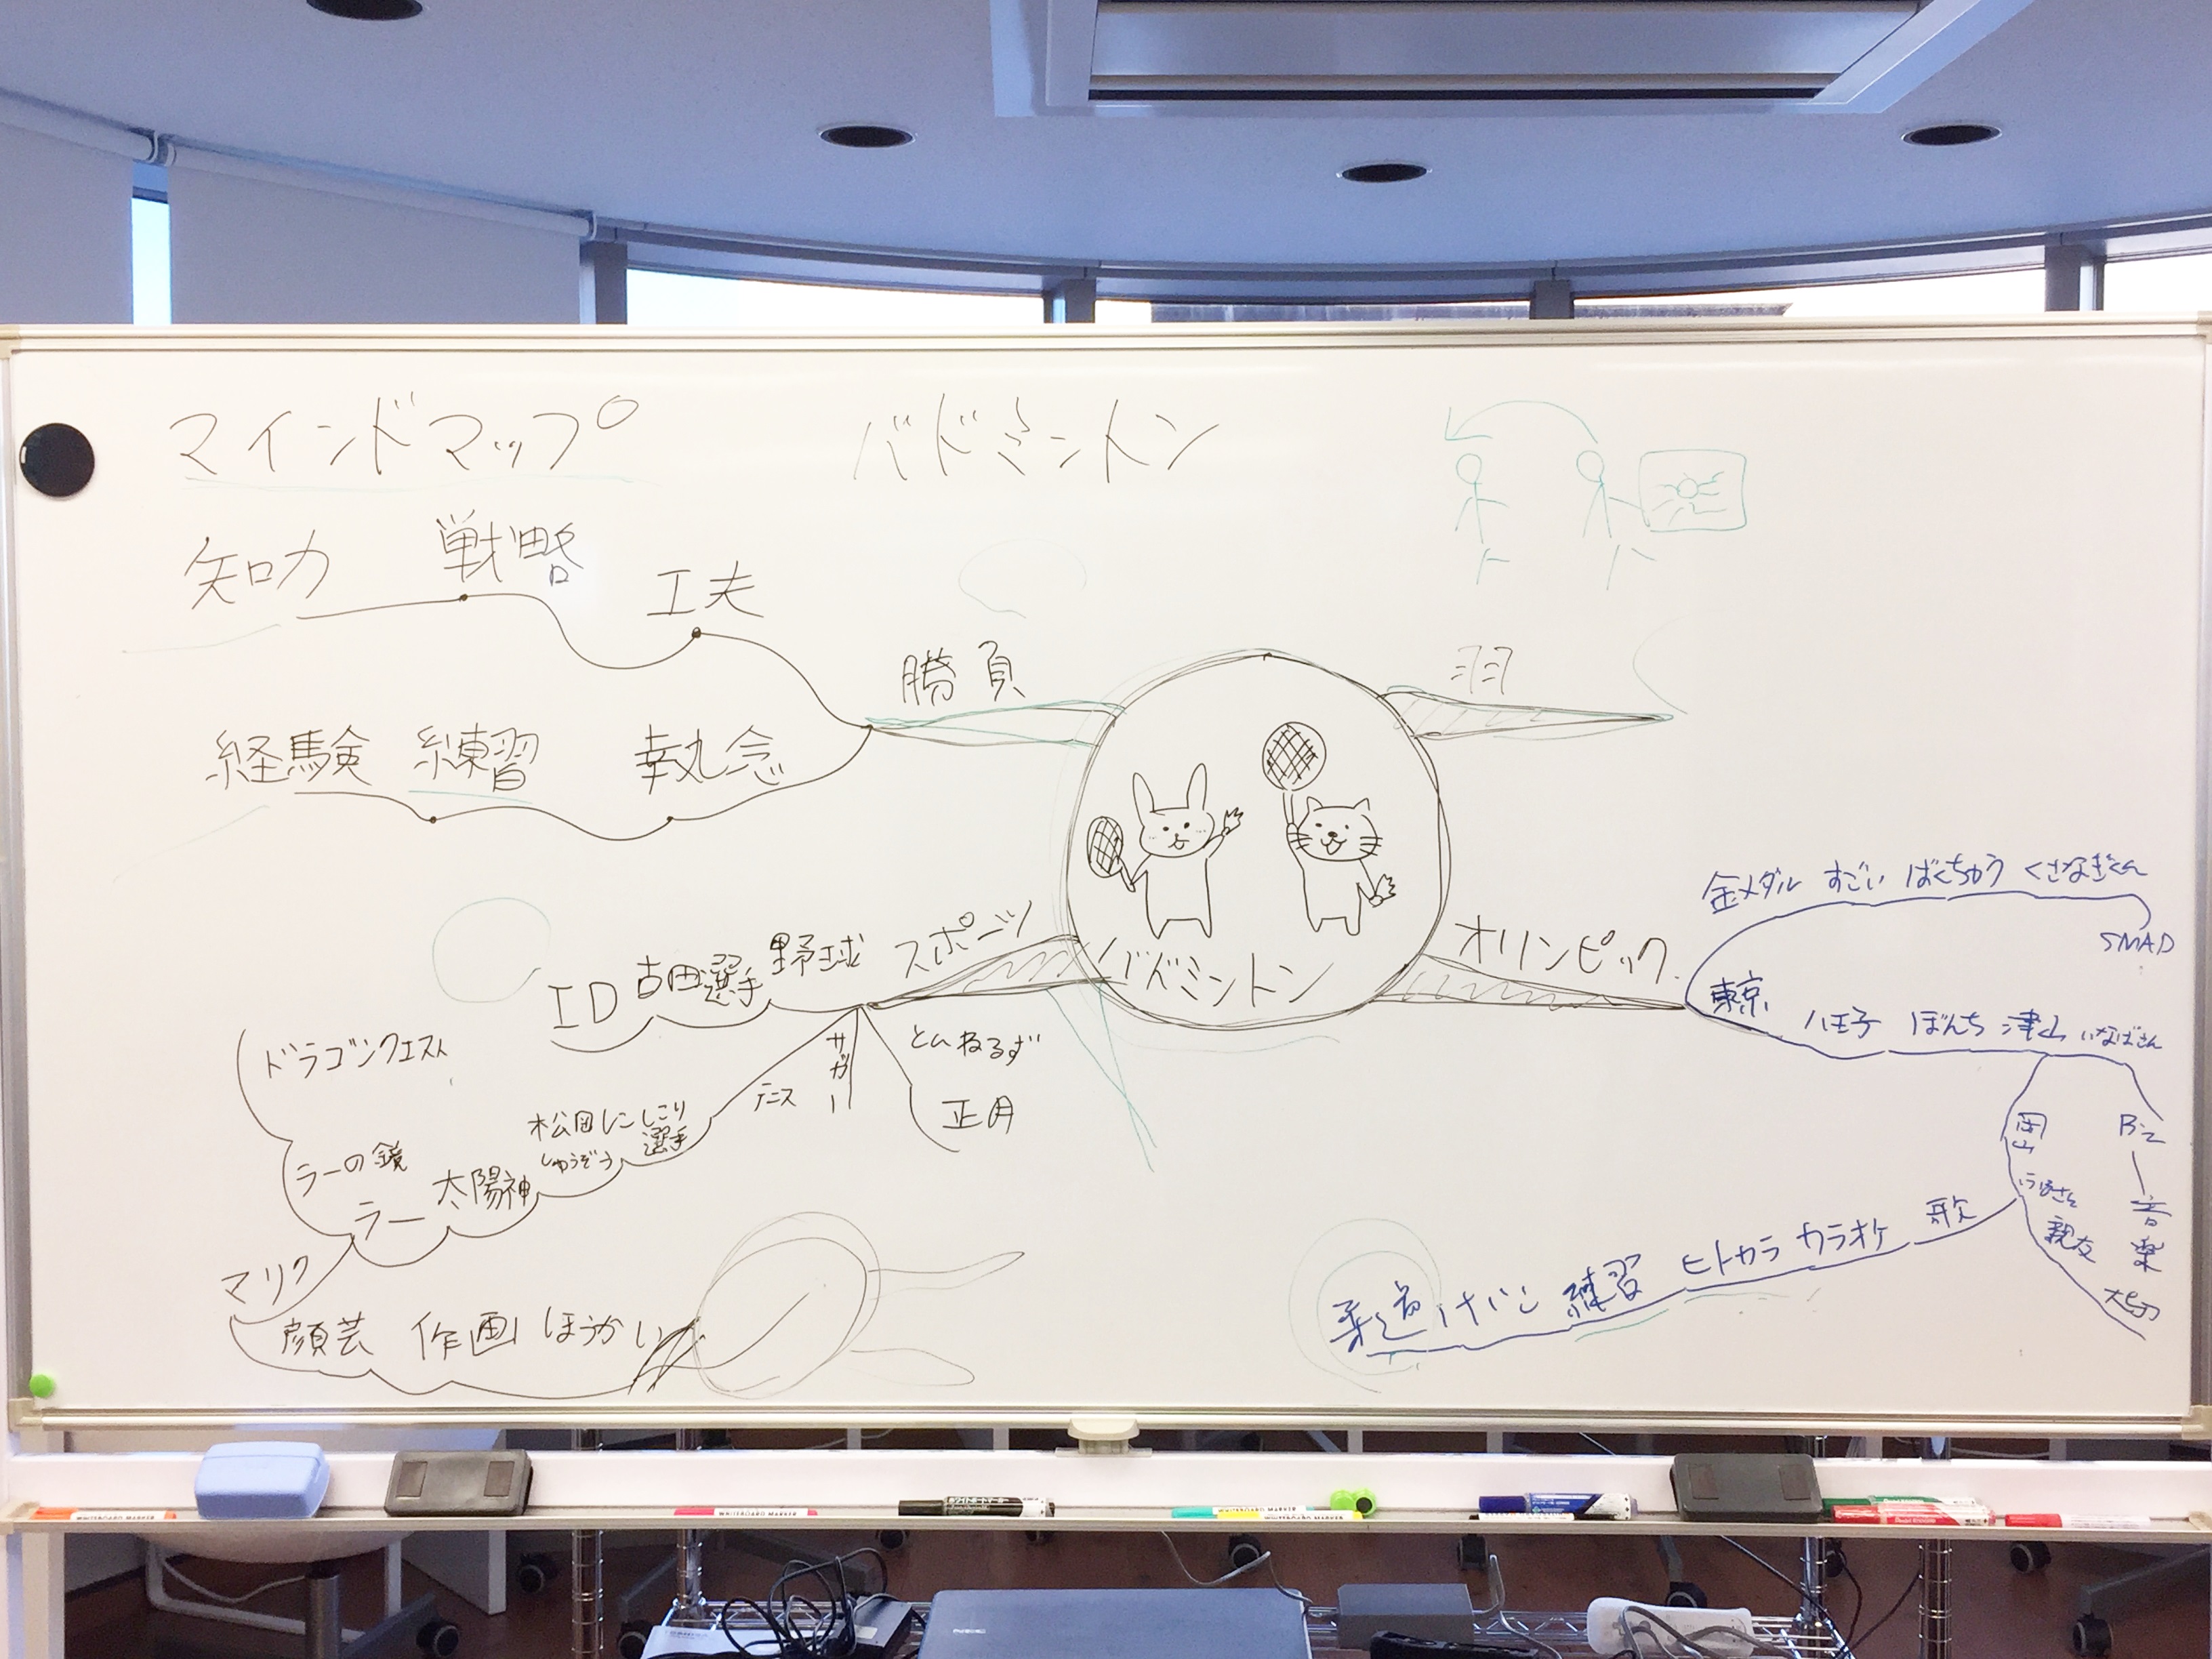 マインドマップ
バドミントン
知力 戦略 工夫
勝負
羽
経験 練習 執念
バドミントン
スポーツ
野球
古田選手
ID
サガー
とんねるず
正月
テニス
にしこり
選手
松岡
しゅうぞう
太陽神
ラー
ラーの鏡
ドラゴンクエスト
マリク
顔芸 作画 ほうかい
オリンピック
金メダル すごい ばくちゅう くさなぎくん
SMAP
東京 八王子 ぼんち 津山 いなばさん
B'z
音楽
岡山
親友
大切
歌
カラオケ
ヒトカラ
練習
けいこ
柔道
WHITEBOARD MARKER
ホワイトボードマーカー
WHITEBOARD MARKER
WHITEBOARD MARKER
WHITEBOARD MARKER